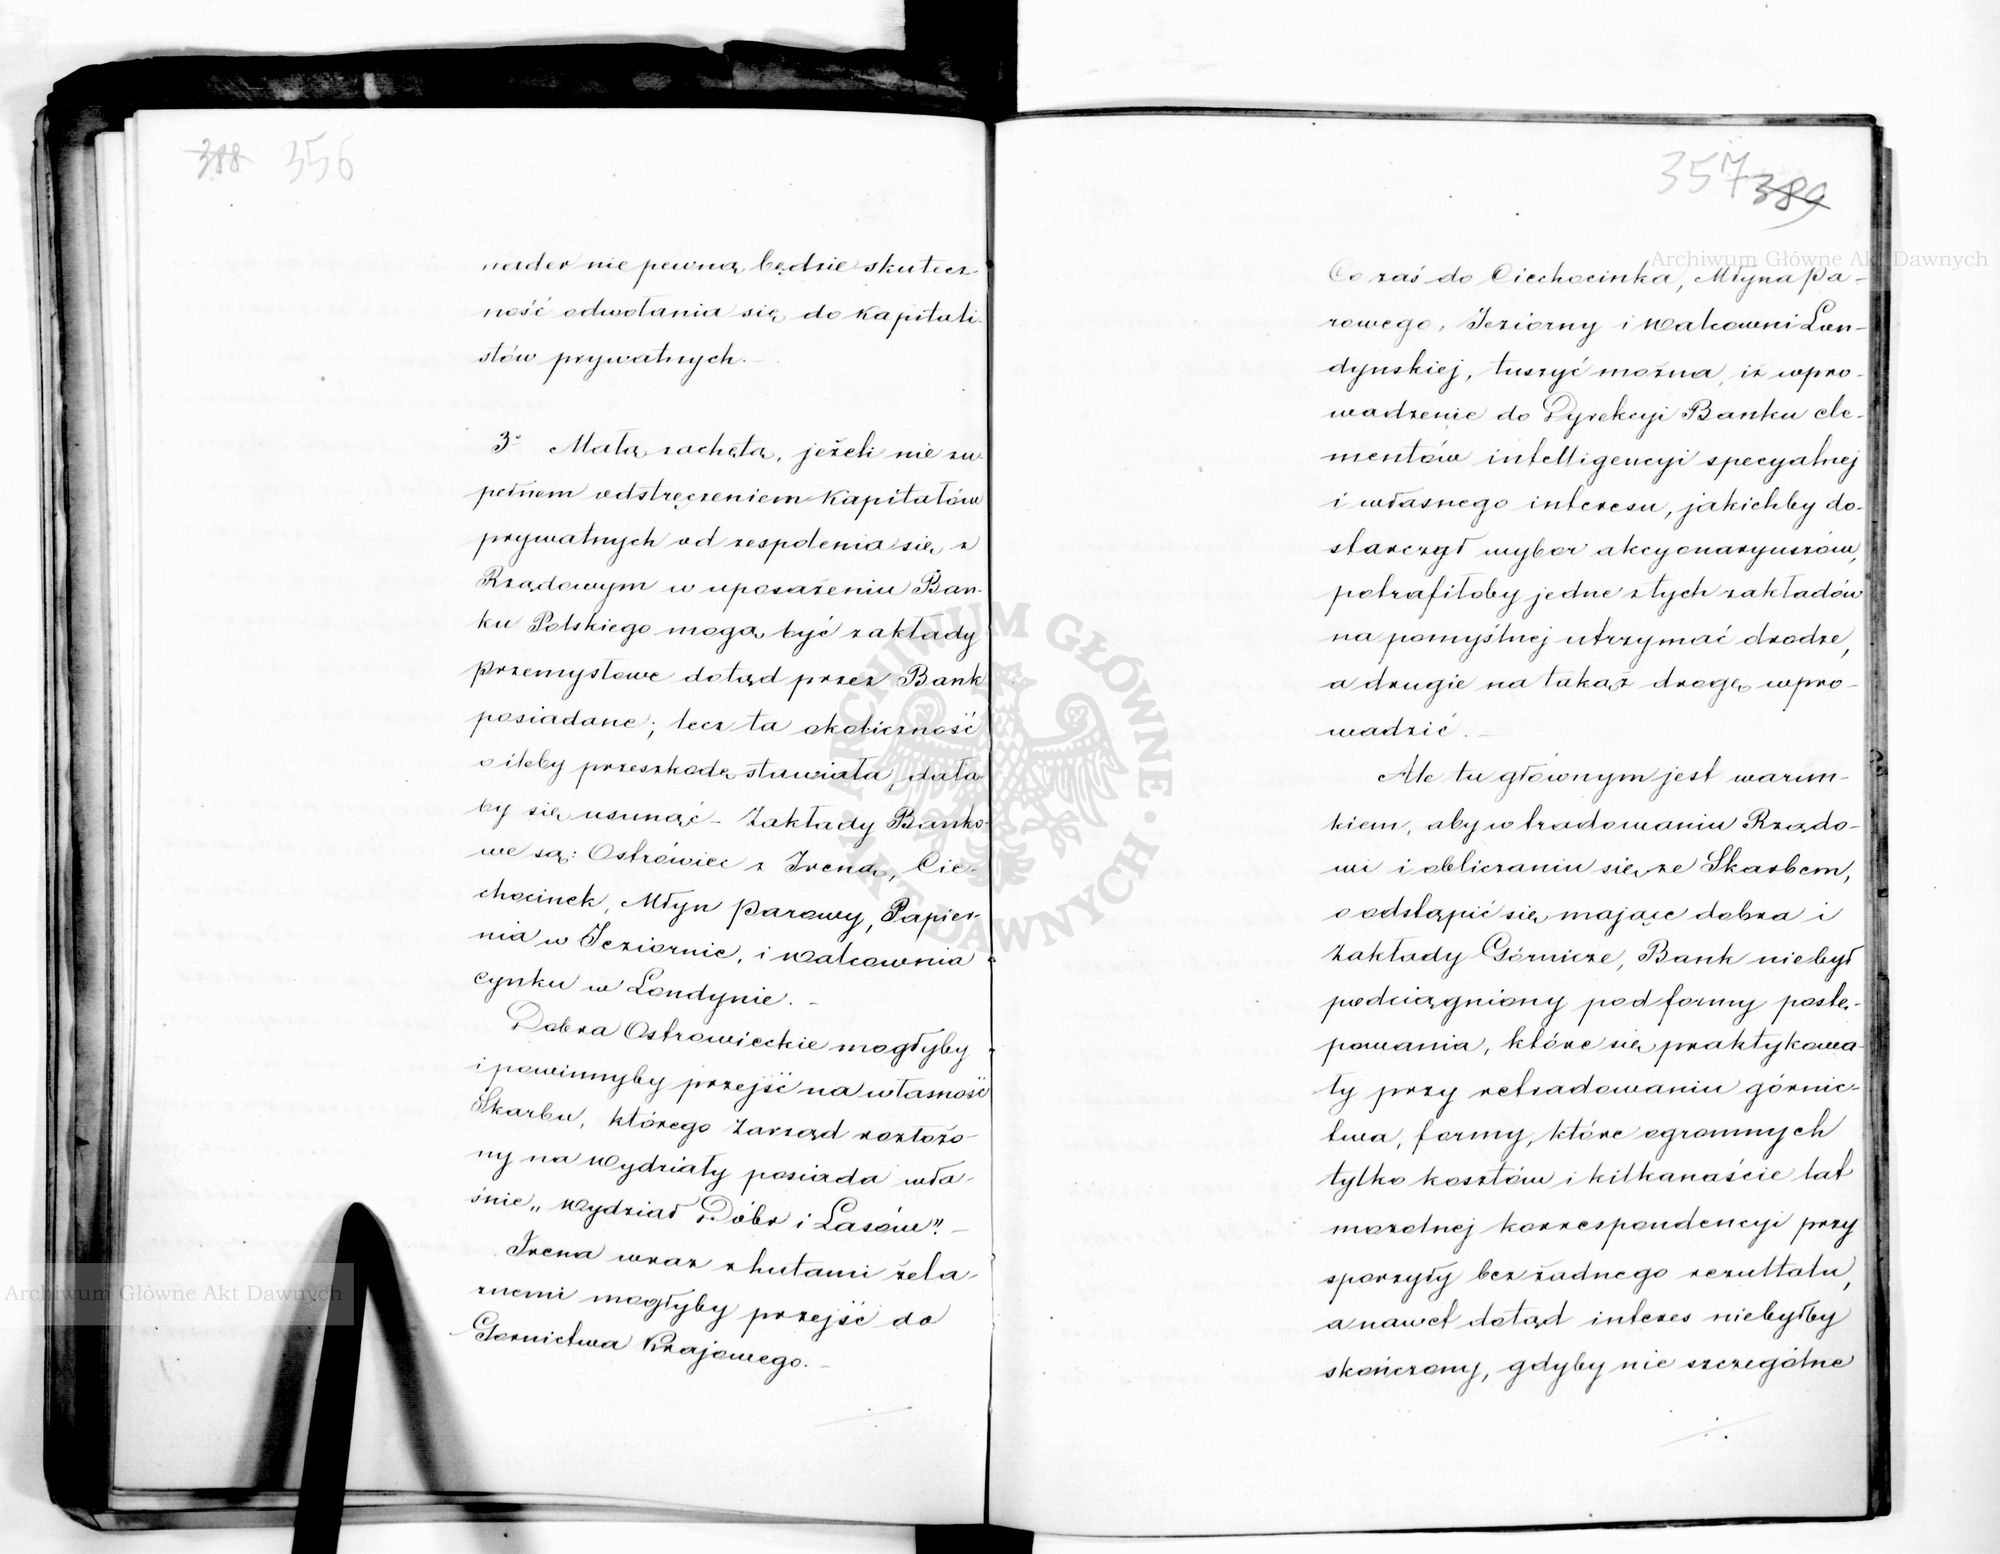 388 356
nader nie pewną będzie skutecz-
ność odwołania się do kapitali-
stów prywatnych. —
3° Małą zachętą, jeżeli nie zu
pełnem odstręczeniem kapitałów
prywatnych od zespolenia się z
Rządowym w uposażeniu Ban-
ku Polskiego mogą być zakłady
przemysłowe dotąd przez Bank
posiadane; lecz ta okoliczność
o ileby przeszkodę stawiała, dała
by się usunąć – Zakłady Banko-
we są: Ostrówiec z Ireną, Cie-
chocinek, Młyn parowy, Papier-
nia w Jeziornie, i Walcownia
cynku w Londynie. –
Dobra Ostrowieckie mogłyby
i powinnyby przejść na własność
Skarbu, którego Zarząd rozłożo-
ny na Wydziały posiada wła-
śnie „Wydział Dóbr i Lasów". –
Irena wraz z hutami żela-
znemi mogłyby przejść do
Gornictwa Krajowego. –
357 389
Co zaś do Ciechocinka, Młyna pa-
rowego, Jeziorny i Walcowni Lon-
dynskiej, tuszyć można, iż wpro-
wadzenie do Dyrekcyi Banku ele-
mentów intelligencyi specyalnej
i własnego interesu, jakichby do-
starczył wybor akcyonaryuszów,
potrafiłoby jedne z tych zakładów
na pomyślnej utrzymać drodze,
a drugie na takąż drogę wpro-
wadzić. —
Ale tu głównym jest warun-
kiem, aby w tradowaniu Rządo-
wi i obliczaniu się ze Skarbem,
o odstąpić się mające dobra i
Zakłady Górnicze, Bank niebył
podciągniony pod formy postę-
powania, które się praktykowa-
ły przy retradowaniu górnic-
twa, formy, które ogromnych
tylko kosztów i kilkanaście lat
mozolnej korrespondencyi przy
sporzyły bez żadnego rezultatu,
a nawet dotąd interes niebyłby
skończony, gdyby nie szczególne
Archiwum Główne Akt Dawnych
Archiwum Główne Akt Dawnych
ARCHIWUM GŁÓWNE AKT DAWNYCH